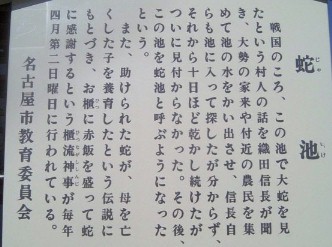 蛇池
じゃ
いけ
戦国のころ、この池で大蛇を見
たという村人の話を織田信長が聞
き、大勢の家来や付近の農民を集
めて池の水をかい出させ、信長自
らも池に入って探したが分からず、
それから十日ほど乾かし続けたが
ついに見付からなかった。その後、
この池を蛇池と呼ぶようになった
という。
また、助けられた蛇が、母を亡
くした子を養育したという伝説に
もとづき、お櫃に赤飯を盛って蛇
に感謝するという櫃流し神事が毎年
四月第二日曜日に行われている。
名古屋市教育委員会